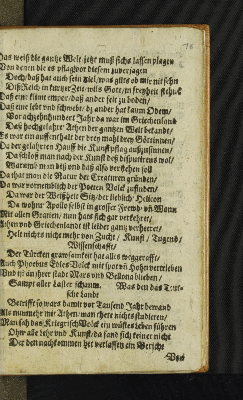 Das weiß die gantze Welt jetzt muß sichs lassen plagen
Von denen die es pflag vor diesem zuverjagen
Doch/ daß hat auch sein Ziel/ was gilts ob mir nit sehn
Diß Reich in kurtzer Zeit/ wils Gott/ in freyheit stehn
Daß eine könne empor/ daß ander seit zu boden/
Daß eine lebt und schwebt/ dz ander hat kaum Odem/
Vor achzehnhundert Jahr da war im Griechenland
Daß hochgelahrt Athen der gantzen Welt bekandt/
Es war ein auffenthalt der drey mahl drey Göttinnen/
Da der gelahrten Hauff die Kunst pflag außzusinnen/
Da schloß man nach der Kunst deß disputirens wol/
Warumb man diß und daß also verstehen soll
Da that man die Natur der Creaturen gründen/
Da war vornemblich der Poeten Volck zufinden/
Da war der Weißheit Sitz/ der lieblich' Helicon
Da wohnt Apollo selbst in grosser Frewd' vñ Wonn
Mit allen Gratien/ nun hats sich gar verkehret/
Athen und Griechenland ist leider gantz verheeret/
Helt nichts nicht mehr von Zucht/ Kunst/ Tugend/
Wissenschafft/
Der Türcken grawsamkeit hat alles weggerafft/
Auch Phoebus Edles Volck mit spot vñ Hohn vertrieben
Und ist an ihrer stadt Mars und Bellona blieben/
Sampt aller Laster schaum. Was den das Teut-
sche Landt
Betrifft so wars damit vor Tausend Jahr bewand
Als nunmehr mit Athen/ man thete nicht studieren/
Man sah das Kriegrisch Volck ein wüstes Leben führen
Ohn alle Lehr und Kunst/ da fand sich keiner nicht
Der den nachkommen het verlassen ein Bericht